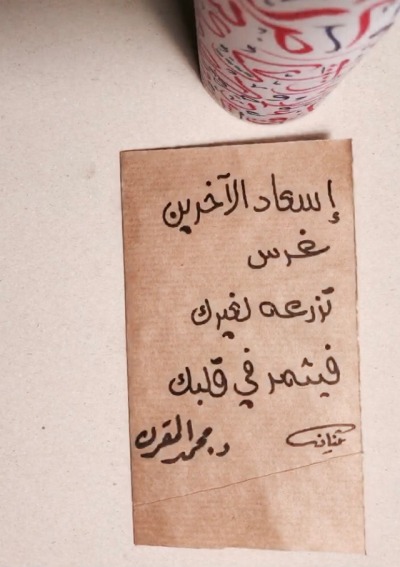 إسعاد الآخرين
غرس
تزرعه لغيرك
فيثمر في قلبك
د. محمد المقرن